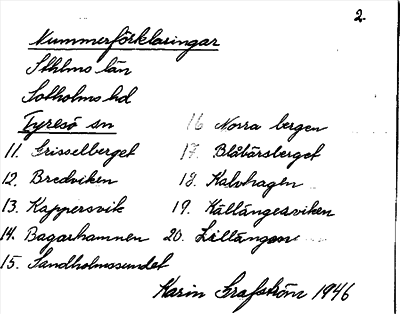 2.
Nummerförklaringar
Sthlms län
Sotholms hd
Tyresö sn
11. Grisselberget
12. Bredviken
13. Kappersvik
14. Bagarhamnen
15. Sandholmssundet
16 Norra bergen
17. Blåbärsberget
18. Kalvhagen
19. Källängesviken
20. Lillängen
Karin Grafström 1946